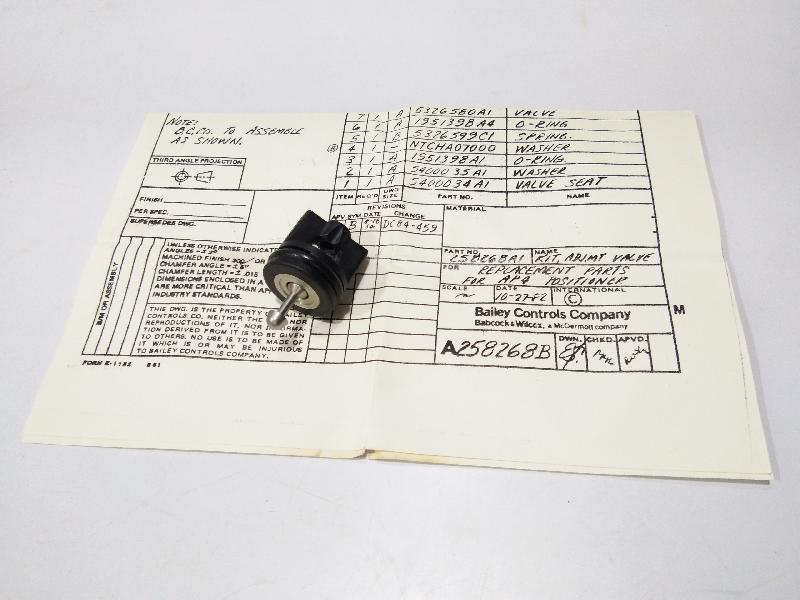 NOTE:
B.C.CO. TO ASSEMBLE
AS SHOWN.
7 1 A 5326580A1 VALVE
6 1 A 1951398A4 O-RING
5 1 B 5326599C1 SPRING
4 1 - NTCHA07000 WASHER
3 1 A 1951398A1 O-RING
2 1 A 5400035A1 WASHER
1 1 A 5400034A1 VALVE SEAT
ITEM REQ'D DWG SIZE PART NO. NAME
THIRD ANGLE PROJECTION
FINISH
PER SPEC.
SUPERSEDES DWG.
REVISIONS
APV SYM DATE CHANGE
B DC84-459
MATERIAL
UNLESS OTHERWISE INDICATE
ANGLES = ±
MACHINED FINISH OR
CHAMFER ANGLE = ±
CHAMFER LENGTH = ± .015
DIMENSIONS ENCLOSED IN A
ARE MORE CRITICAL THAN
INDUSTRY STANDARDS.
B/M OR ASSEMBLY
THIS DWG. IS THE PROPERTY OF BAILEY
CONTROLS CO. NEITHER THE NOR
REPRODUCTIONS OF IT, NOR INFORMA-
TION DERIVED FROM IT IS TO BE GIVEN
TO OTHERS. NO USE IS TO BE MADE OF
IT WHICH IS OR MAY BE INJURIOUS
TO BAILEY CONTROLS COMPANY.
PART NO. NAME
258268A1 KIT, ADJMT VALVE
FOR REPLACEMENT PARTS
FOR AP4 POSITIONER
SCALE DATE INTERNATIONAL
10-27-82 C
Bailey Controls Company
Babcock & Wilcox, a McDermott company
A258268B DWN. CHKD. APVD.
M
FORM E-1182